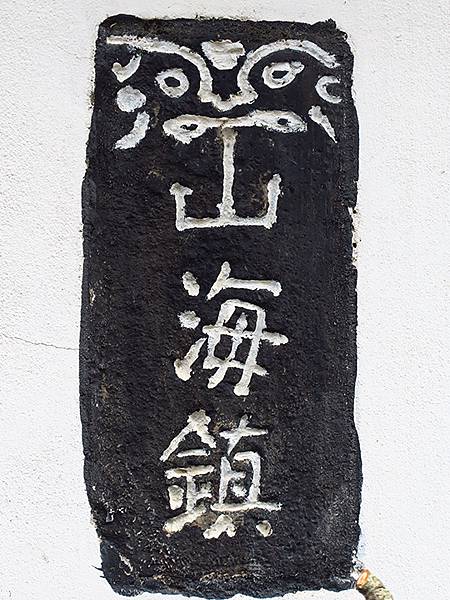 山海鎮